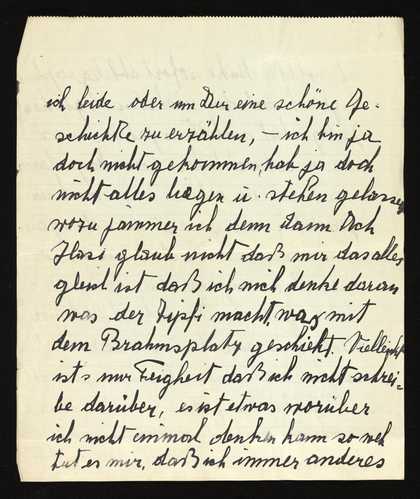 ich leide oder um Dir eine schöne Ge-
schichte zu erzählen, – ich bin ja
doch nicht gekommen, hab ja doch
nicht alles liegen u. stehen gelassen
wozu jammer ich denn dann. Ach
Hasi glaub nicht daß mir das alles
gleich ist daß ich nich denke daran
was der Zipfi macht, was mit
dem Brahmsplatz geschieht. Vielleicht
ist's nur Feigheit daß ich nicht schrei-
be darüber, es ist etwas worüber
ich nicht einmal denken kann so weh
tut es mir, daß ich immer anderes